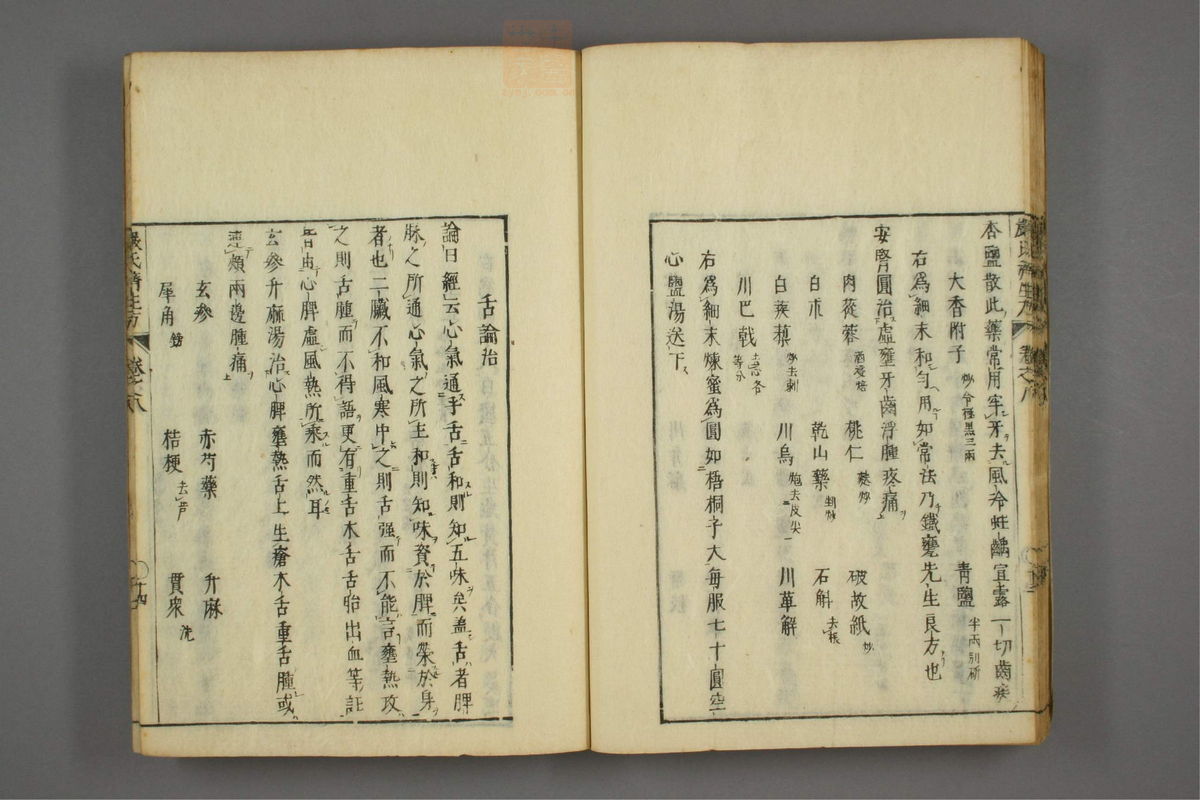 杏鹽散此藥常用牢牙去風冷蚛齲宜露一切齒疾
大香附子炒令極黑三兩 青鹽半兩別研
右爲細末和勻用如常法乃鐵甕先生良方也
安腎圓治虛壅牙齒浮腫疼痛
肉蓯蓉酒浸焙 桃仁麩炒 破故紙炒
白朮 乾山藥剉炒 石斛去根
白蒺藜炒去刺 川烏炮去皮尖 川萆解
川巴戟去心各等分
右爲細末煉蜜爲圓如梧桐子大每服七十圓空
心鹽湯送下
嚴氏濟生方 卷之八
舌論治
論曰經云心氣通乎舌舌和則知五味矣盖舌者脾
脉之所通心氣之所主和則知味資於脾而榮於身
者也二臟不和風寒中之則舌强而不能言壅熱攻
之則舌腫而不得語更有重舌木舌舌胎出血等証
皆由心脾虛風熱所乘而然耳
玄參升麻湯治心脾壅熱舌上生瘡木舌重舌腫或
連頰兩邊腫痛
玄參 赤芍藥 升麻
犀角鎊 桔梗去芦 貫衆洗
嚴氏濟生方 卷之八 十四